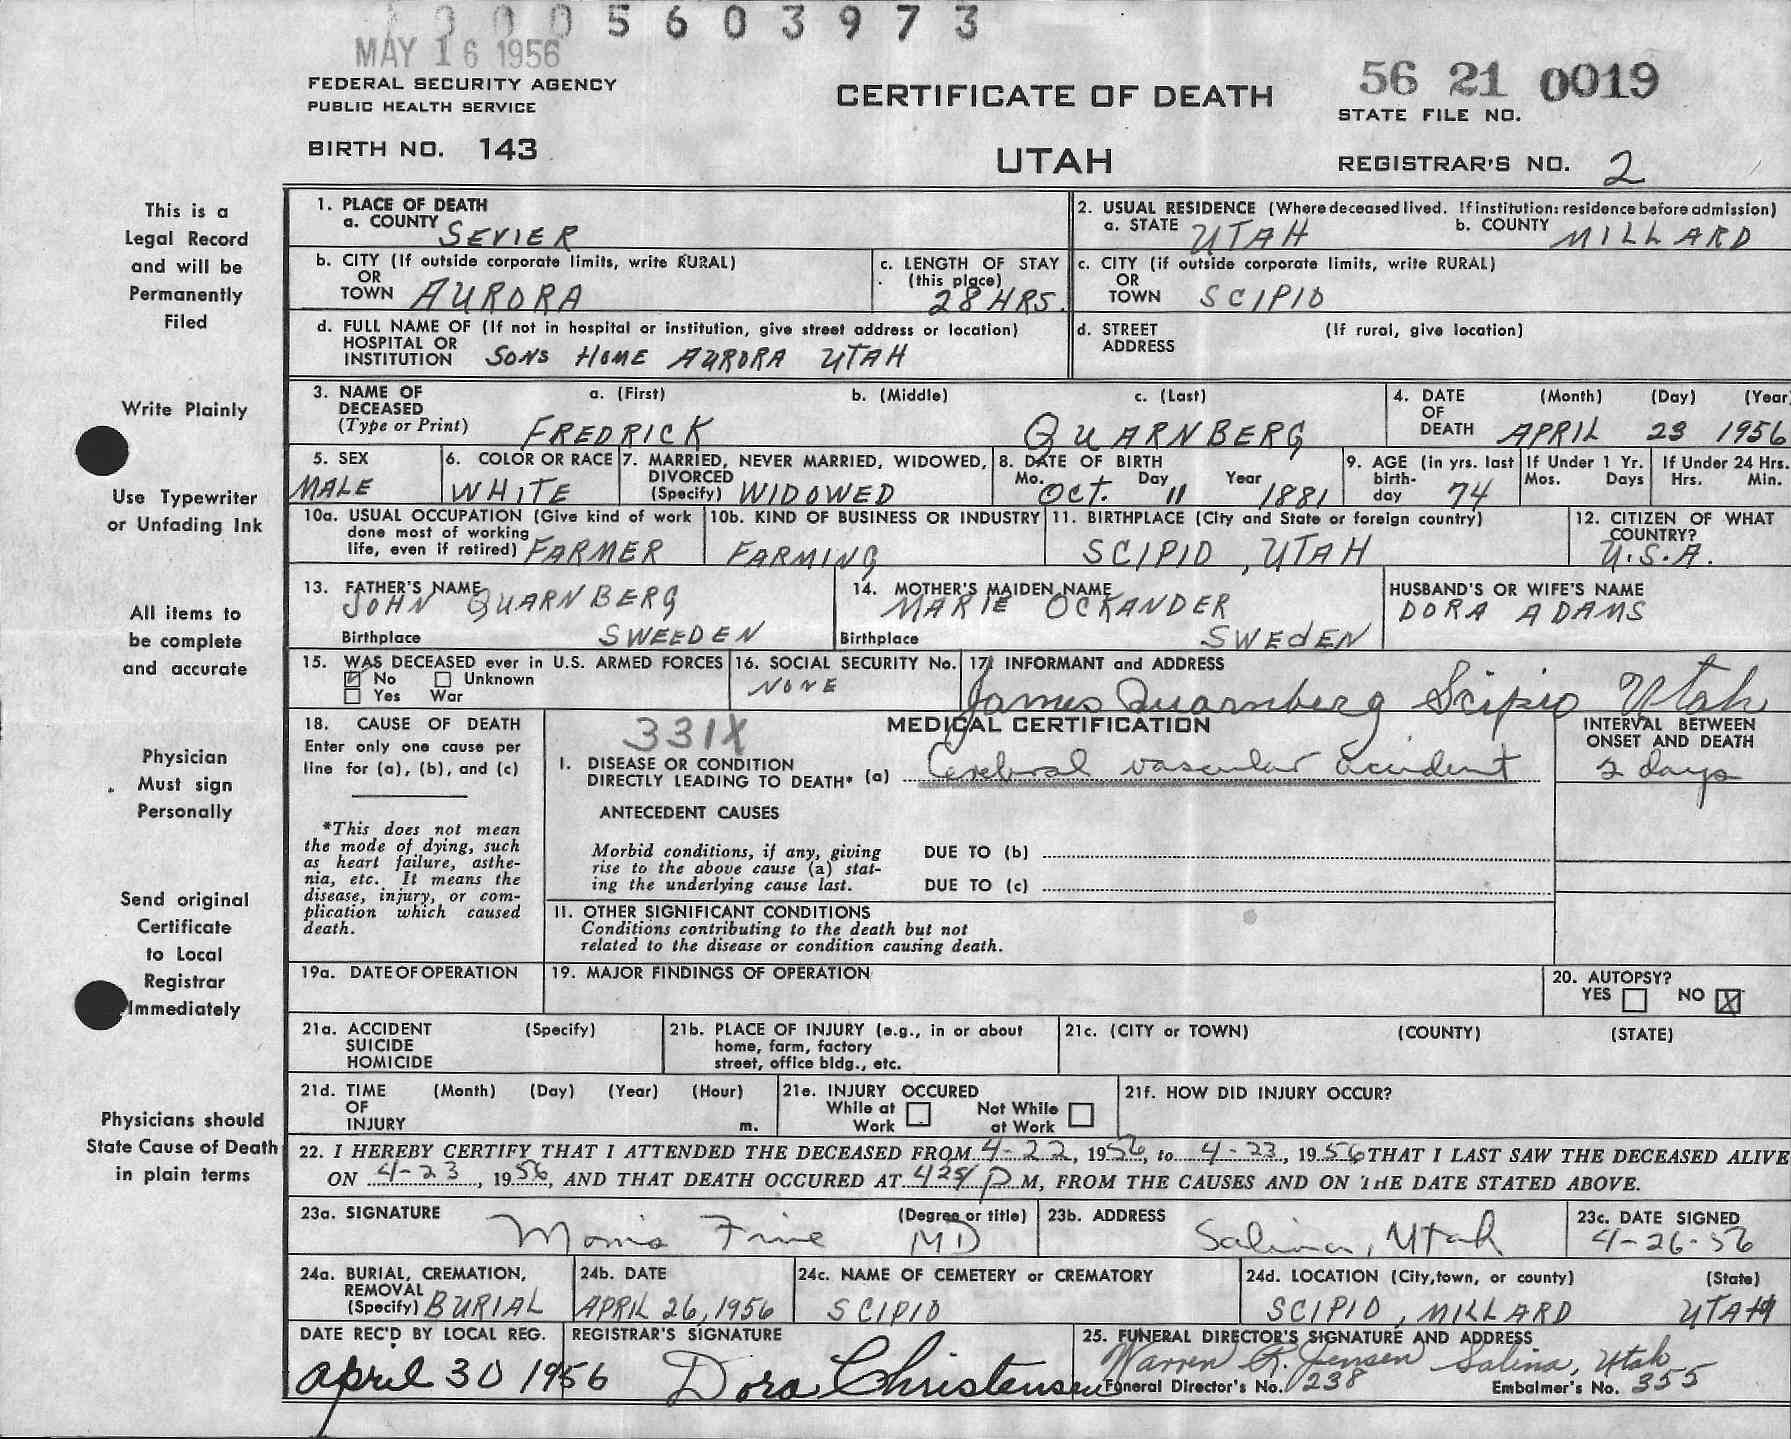 0005603973
MAY 16 1956
FEDERAL SECURITY AGENCY
PUBLIC HEALTH SERVICE
BIRTH NO. 143
CERTIFICATE OF DEATH
UTAH
56 21 0019
STATE FILE NO.
REGISTRAR'S NO. 2
This is a
Legal Record
and will be
Permanently
Filed
Write Plainly
Use Typewriter
or Unfading Ink
All items to
be complete
and accurate
Physician
Must sign
Personally
Send original
Certificate
to Local
Registrar
Immediately
Physicians should
State Cause of Death
in plain terms
1. PLACE OF DEATH
a. COUNTY SEVIER
2. USUAL RESIDENCE (Where deceased lived. If institution: residence before admission)
a. STATE UTAH b. COUNTY MILLARD
b. CITY (If outside corporate limits, write RURAL)
OR
TOWN AURORA
c. LENGTH OF STAY
(this place)
28 HRS.
c. CITY (if outside corporate limits, write RURAL)
OR
TOWN SCIPIO
d. FULL NAME OF (If not in hospital or institution, give street address or location)
HOSPITAL OR
INSTITUTION SONS HOME AURORA UTAH
d. STREET (If rural, give location)
ADDRESS
3. NAME OF a. (First) b. (Middle) c. (Last)
DECEASED
(Type or Print) FREDRICK QUARNBERG
4. DATE (Month) (Day) (Year
OF
DEATH APRIL 23 1956
5. SEX
MALE
6. COLOR OR RACE
WHITE
7. MARRIED, NEVER MARRIED, WIDOWED,
DIVORCED
(Specify) WIDOWED
8. DATE OF BIRTH
Mo. Day Year
OCT. 11 1881
9. AGE (in yrs. last
birth-
day 74
If Under 1 Yr.
Mos. Days
If Under 24 Hrs.
Hrs. Min.
10a. USUAL OCCUPATION (Give kind of work
done most of working
life, even if retired) FARMER
10b. KIND OF BUSINESS OR INDUSTRY
FARMING
11. BIRTHPLACE (City and State or foreign country)
SCIPIO, UTAH
12. CITIZEN OF WHAT
COUNTRY?
U.S.A.
13. FATHER'S NAME
JOHN QUARNBERG
Birthplace SWEEDEN
14. MOTHER'S MAIDEN NAME
MARIE OCKANDER
Birthplace SWEdEN
HUSBAND'S OR WIFE'S NAME
DORA ADAMS
15. WAS DECEASED ever in U.S. ARMED FORCES
No Unknown
Yes War
16. SOCIAL SECURITY No.
NONE
17. INFORMANT and ADDRESS
James Quarnberg Scipio Utah
18. CAUSE OF DEATH
Enter only one cause per
line for (a), (b), and (c)
*This does not mean
the mode of dying, such
as heart failure, asthe-
nia, etc. It means the
disease, injury, or com-
plication which caused
death.
331X
MEDICAL CERTIFICATION
I. DISEASE OR CONDITION
DIRECTLY LEADING TO DEATH* (a) Cerebral vascular accident
INTERVAL BETWEEN
ONSET AND DEATH
2 days
ANTECEDENT CAUSES
Morbid conditions, if any, giving
rise to the above cause (a) stat-
ing the underlying cause last.
DUE TO (b)
DUE TO (c)
II. OTHER SIGNIFICANT CONDITIONS
Conditions contributing to the death but not
related to the disease or condition causing death.
19a. DATE OF OPERATION
19. MAJOR FINDINGS OF OPERATION
20. AUTOPSY?
YES NO X
21a. ACCIDENT (Specify)
SUICIDE
HOMICIDE
21b. PLACE OF INJURY (e.g., in or about
home, farm, factory
street, office bldg., etc.
21c. (CITY or TOWN) (COUNTY) (STATE)
21d. TIME (Month) (Day) (Year) (Hour)
OF
INJURY m.
21e. INJURY OCCURED
While at Work
Not While at Work
21f. HOW DID INJURY OCCUR?
22. I HEREBY CERTIFY THAT I ATTENDED THE DECEASED FROM 4-22, 1956, to 4-23, 1956 THAT I LAST SAW THE DECEASED ALIVE
ON 4-23, 1956, AND THAT DEATH OCCURED AT P M, FROM THE CAUSES AND ON THE DATE STATED ABOVE.
23a. SIGNATURE (Degree or title)
Morris Fine MD
23b. ADDRESS
Salina, Utah
23c. DATE SIGNED
4-26-56
24a. BURIAL, CREMATION,
REMOVAL
(Specify) BURIAL
24b. DATE
APRIL 26, 1956
24c. NAME OF CEMETERY or CREMATORY
SCIPIO
24d. LOCATION (City, town, or county) (State)
SCIPIO, MILLARD UTAH
DATE REC'D BY LOCAL REG.
april 30 1956
REGISTRAR'S SIGNATURE
Dora Christensen
25. FUNERAL DIRECTOR'S SIGNATURE AND ADDRESS
Warren R. Jensen Salina, Utah
Funeral Director's No. 238 Embalmer's No. 355